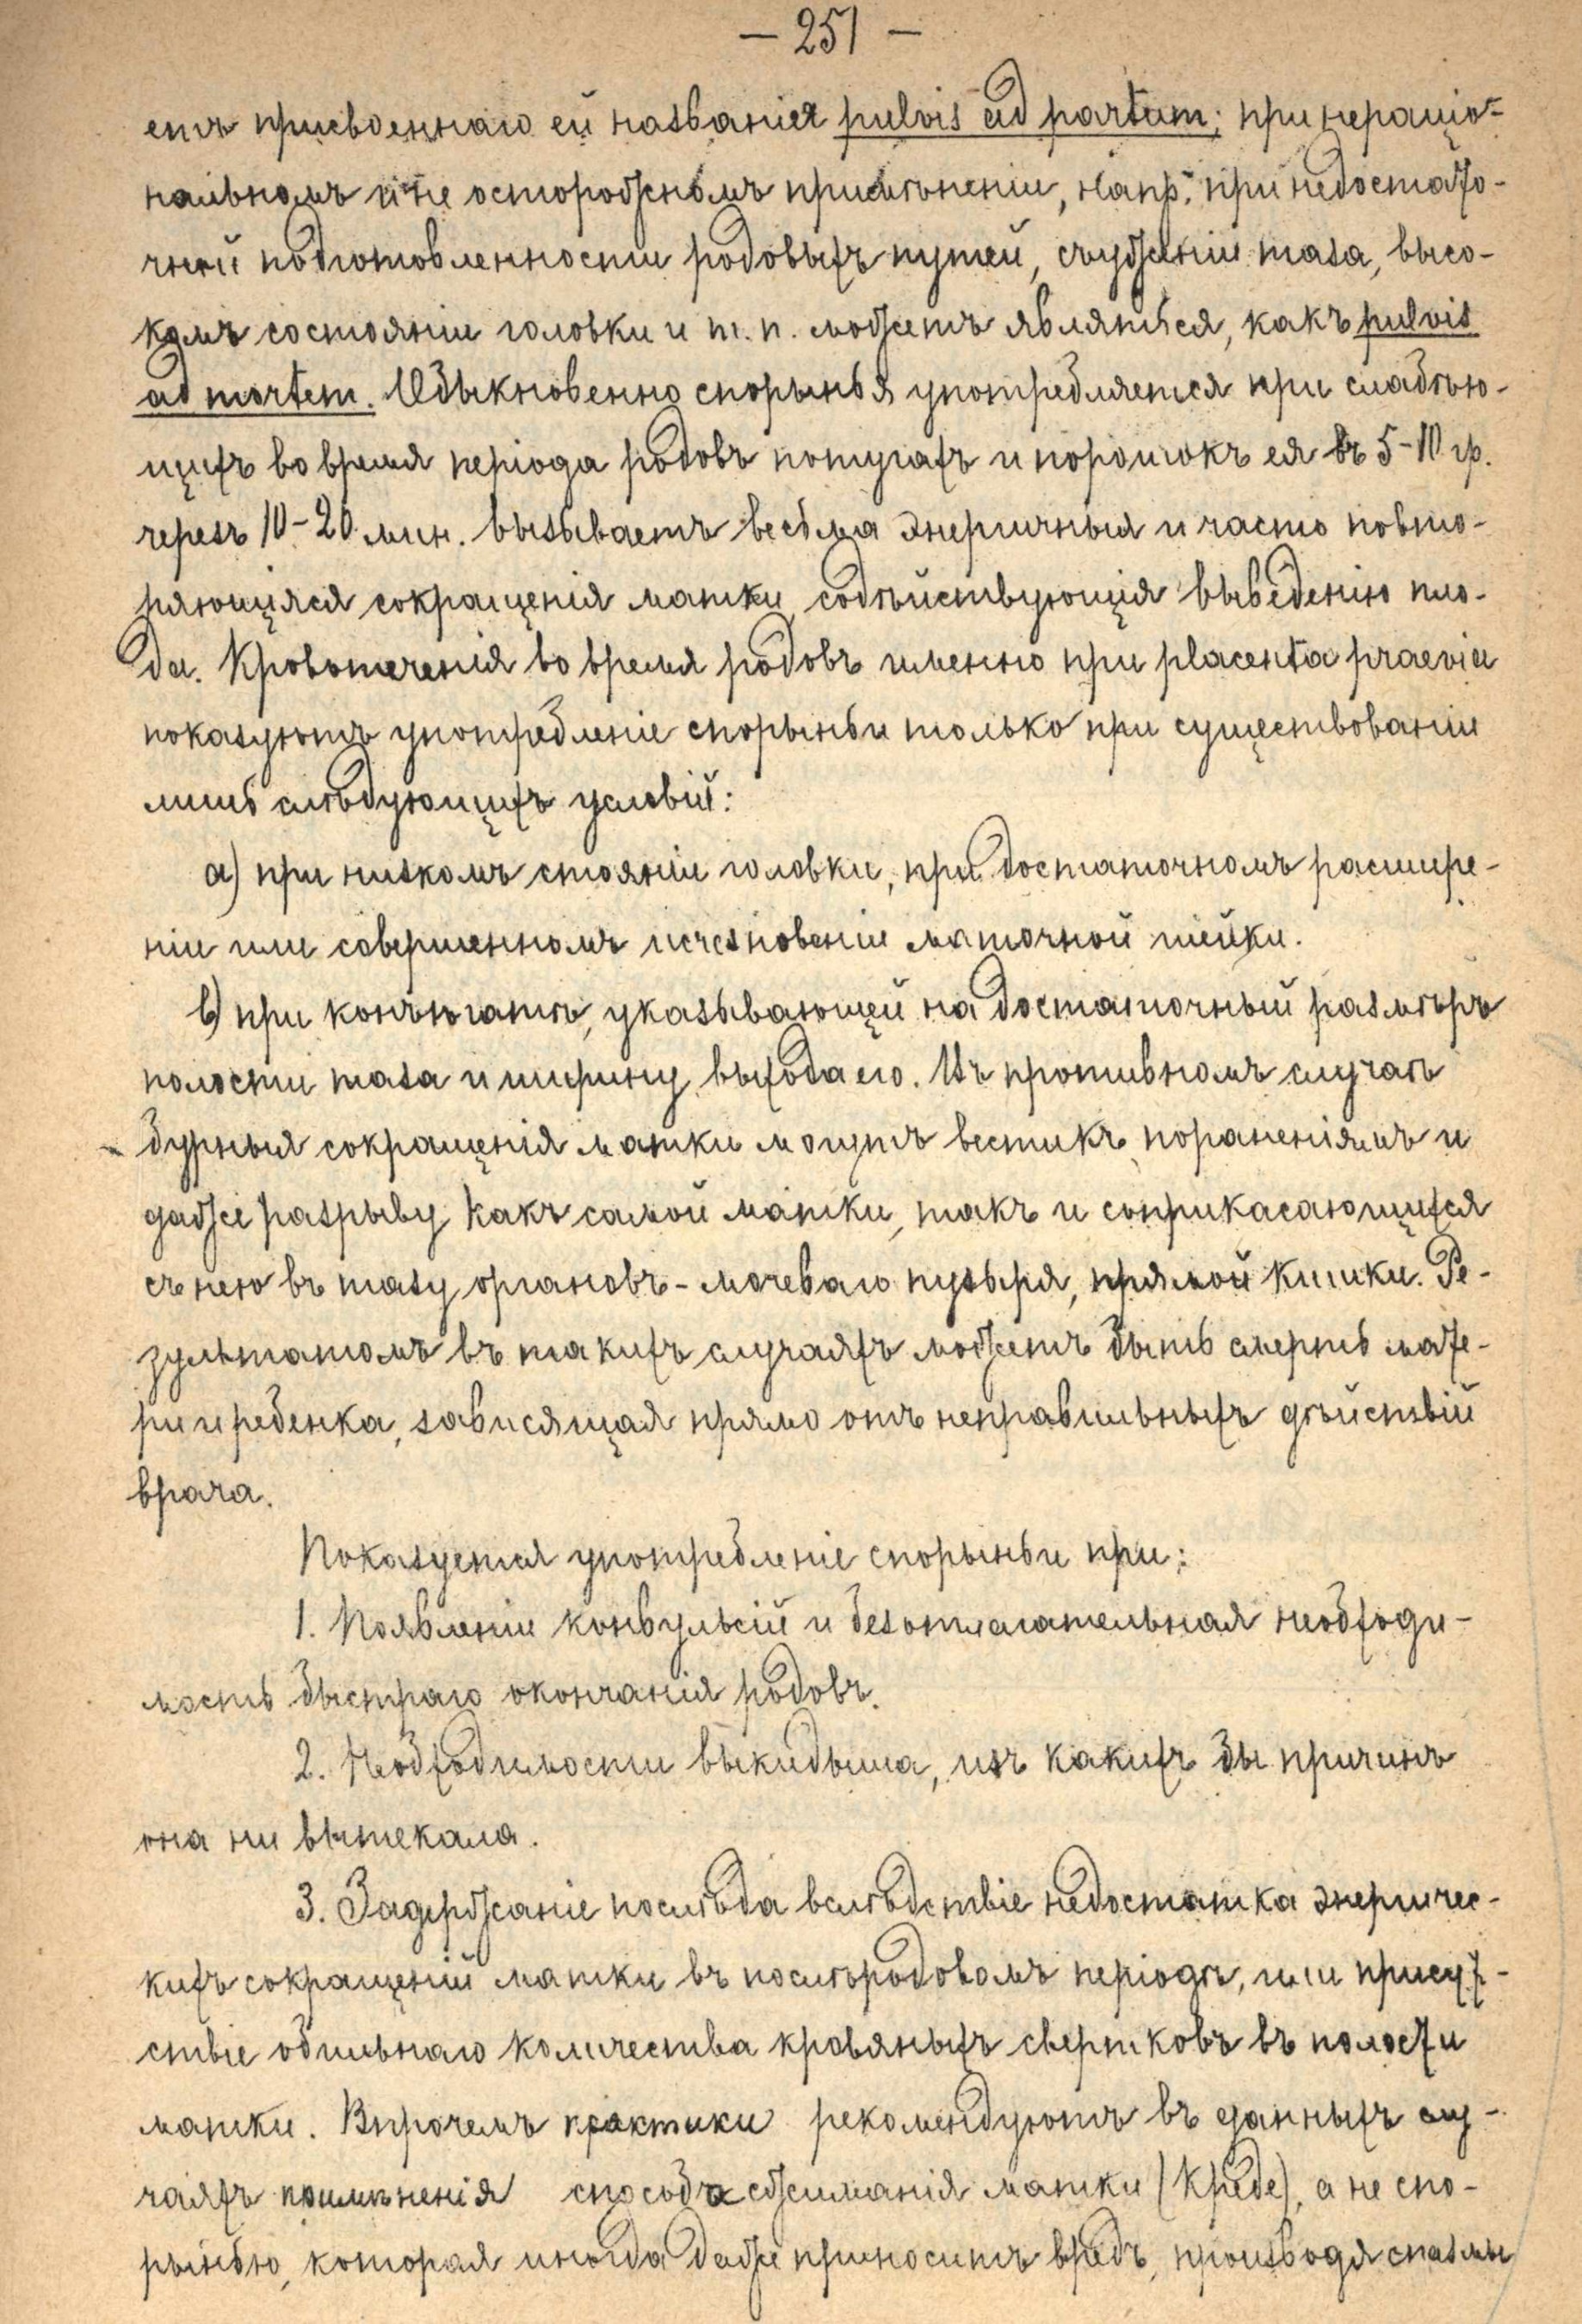 — 251 —
етъ присвоеннаго ей названія pulvis ad partum; при нераціо-
нальномъ и не осторожномъ примѣненіи, напр. при недостато-
чной подготовленности родовыхъ путей, съуженіи таза, высо-
комъ состояніи головки и т. п. можетъ являться, какъ pulvis
ad mortem. Обыкновенно спорынья употребляется при слабѣю-
щихъ во время періода родовъ потугахъ и порошокъ ея въ 5-10 гр.
черезъ 10-20 мин. вызываетъ весьма энергичныя и часто повто-
ряющіяся сокращенія матки, содѣйствующія выведенію пло-
да. Кровотеченія во время родовъ именно при placenta praevia
показуютъ употребленіе спорыньи только при существованіи
лишь слѣдующихъ условій:
а) при низкомъ стояніи головки, при достаточномъ расшире-
ніи или совершенномъ исчезновеніи маточной шейки.
в) при конъюгатѣ, указывающей на достаточный размѣръ
полости таза и ширину выхода его. Въ противномъ случаѣ
бурныя сокращенія матки могутъ вести къ пораненіямъ и
даже разрыву какъ самой матки, такъ и соприкасающихся
съ нею въ тазу органовъ - мочеваго пузыря, прямой кишки. Ре-
зультатомъ въ такихъ случаяхъ можетъ быть смерть мате-
ри и ребенка, зависящая прямо отъ неправильныхъ дѣйствій
врача.
Показуется употребленіе спорыньи при:
1. Появленіи конвульсій и безотлагательная необходи-
мость быстраго окончанія родовъ.
2. Необходимости выкидыша, изъ какихъ бы причинъ
она ни вытекала.
3. Задержаніе послѣда вслѣдствіе недостатка энергичес-
кихъ сокращеній матки въ послѣродовомъ періодѣ, или присут-
ствіе обильнаго количества кровяныхъ свертковъ въ полости
матки. Впрочемъ практики рекомендуютъ въ данныхъ слу-
чаяхъ примѣненія способа сжиманія матки (Креде), а не спо-
рынью, которая иногда даже приноситъ вредъ, производя спазмы